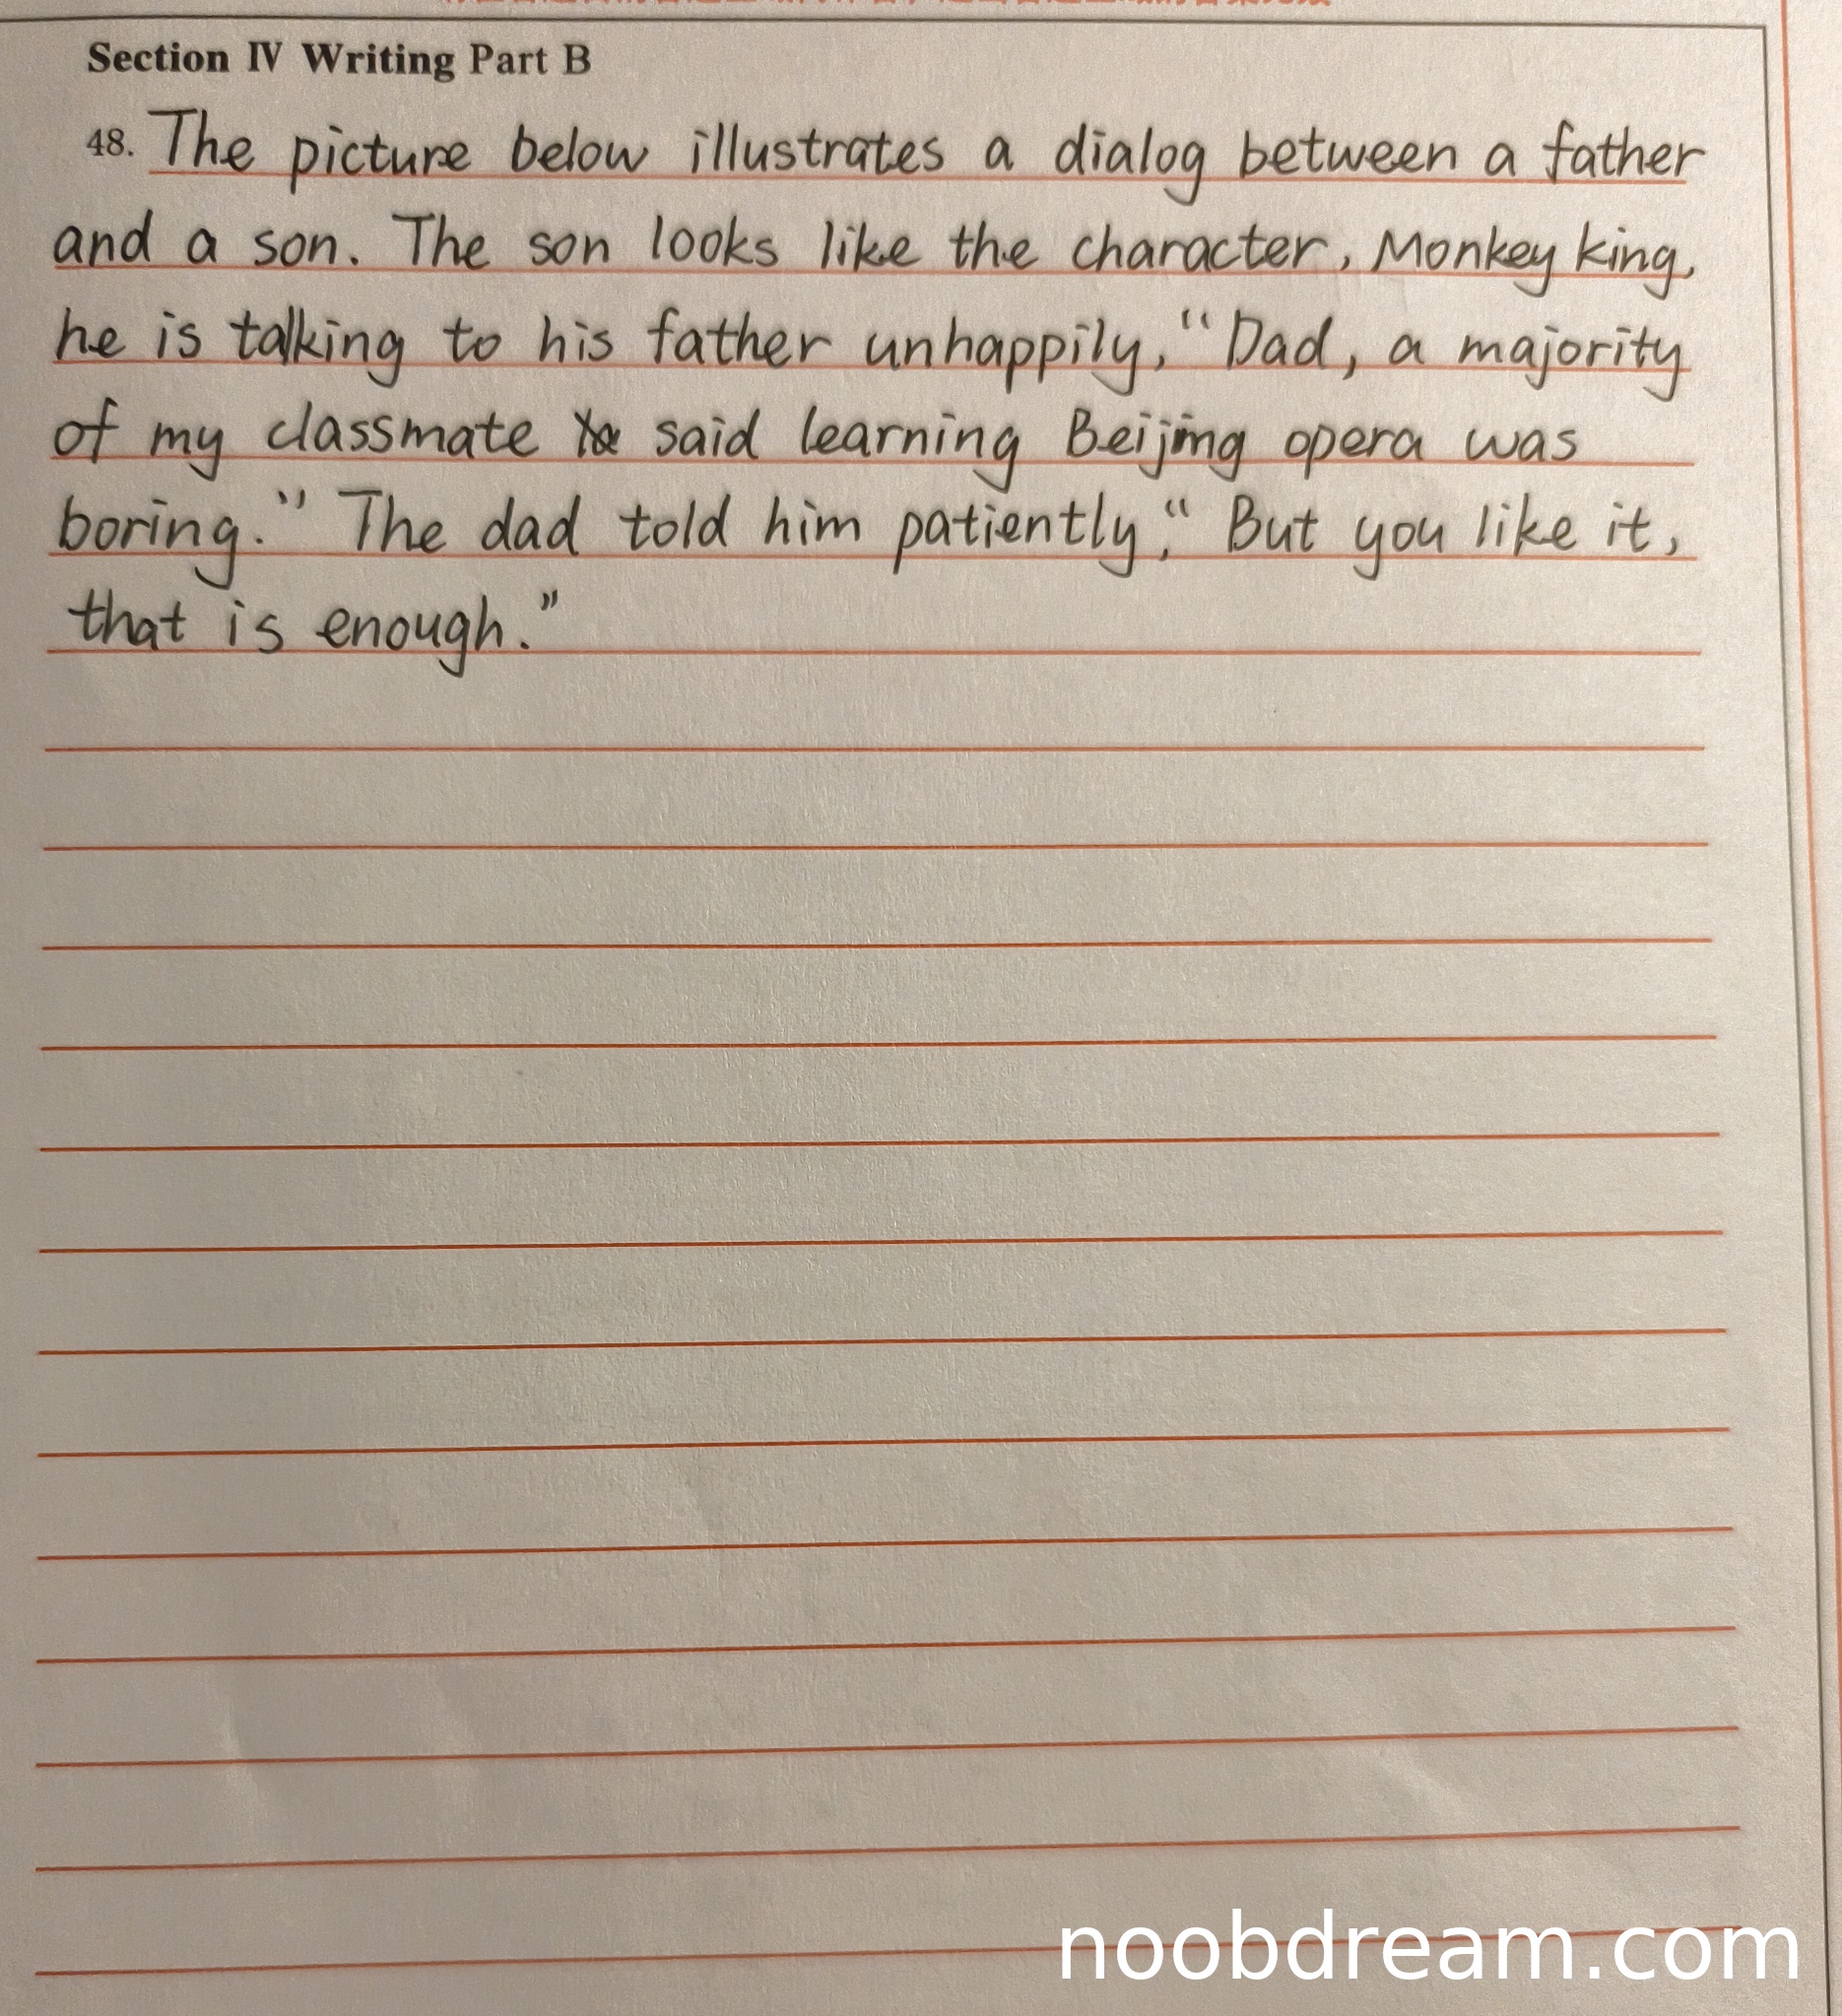 Section IV Writing Part B
48. The picture below illustrates a dialog between a father
and a son. The son looks like the character, Monkey king,
he is talking to his father unhappily, "Dad, a majority
of my classmate said learning Beijing opera was
boring." The dad told him patiently, "But you like it,
that is enough."
noobdream.com